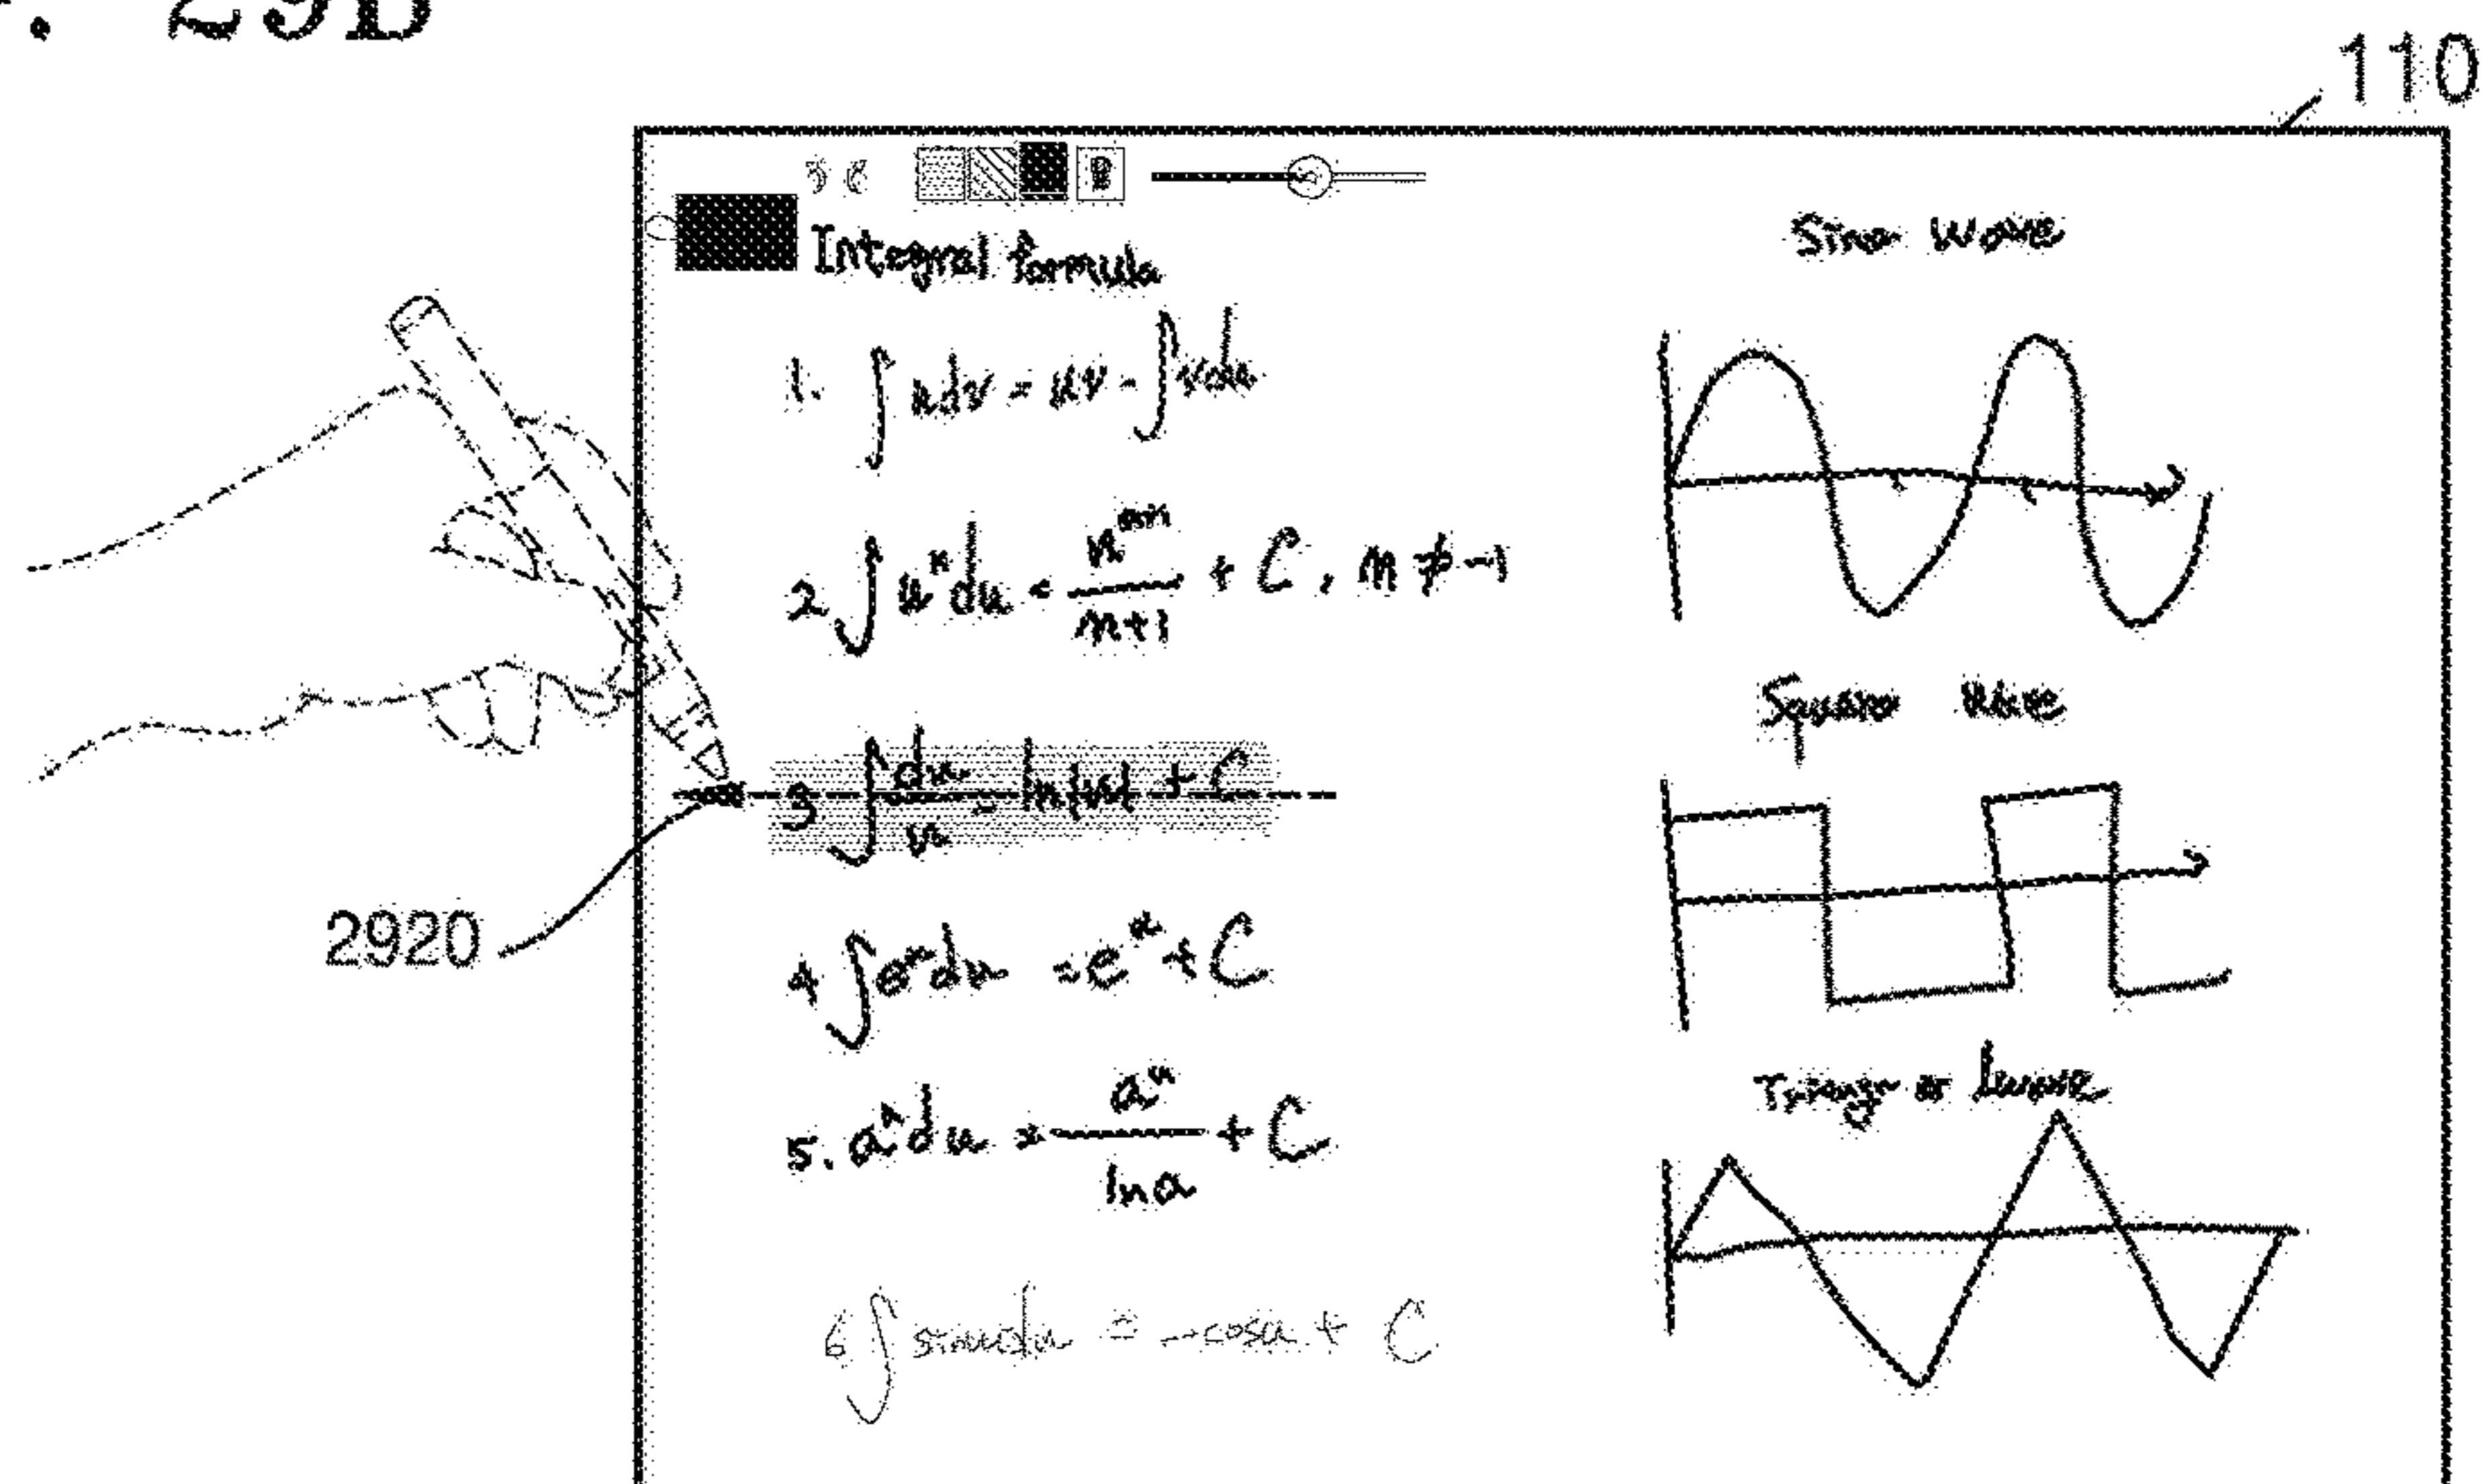 . 29B
110
Integral formula
1. ∫udv = uv - ∫vdu
2 ∫u^n du = u^n+1 / n+1 + C, n ≠ -1
3 ∫du/u = ln|u| + C
2920
4 ∫e^u du = e^u + C
5. a^u du = a^u / ln a + C
6 ∫sinudu = -cosu + C
Sine wave
Square wave